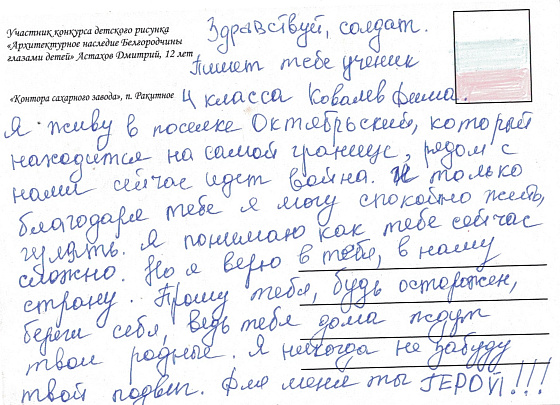 Участник конкурса детского рисунка
«Архитектурное наследие Белгородчины
глазами детей» Астахов Дмитрий, 12 лет
«Контора сахарного завода», п. Ракитное
Здравствуй, солдат.
Пишет тебе ученик
4 класса Ковалев Фима.
Я живу в поселке Октябрьский, который
находится на самой границе, рядом с
нами сейчас идет война. И только
благодаря тебе я могу спокойно жить,
гулять. Я понимаю как тебе сейчас
сложно. Но я верю в тебя, в нашу
страну. Прошу тебя, будь осторожен,
береги себя, ведь тебя дома ждут
твои родные. Я никогда не забуду
твой подвиг. Для меня ты ГЕРОЙ!!!